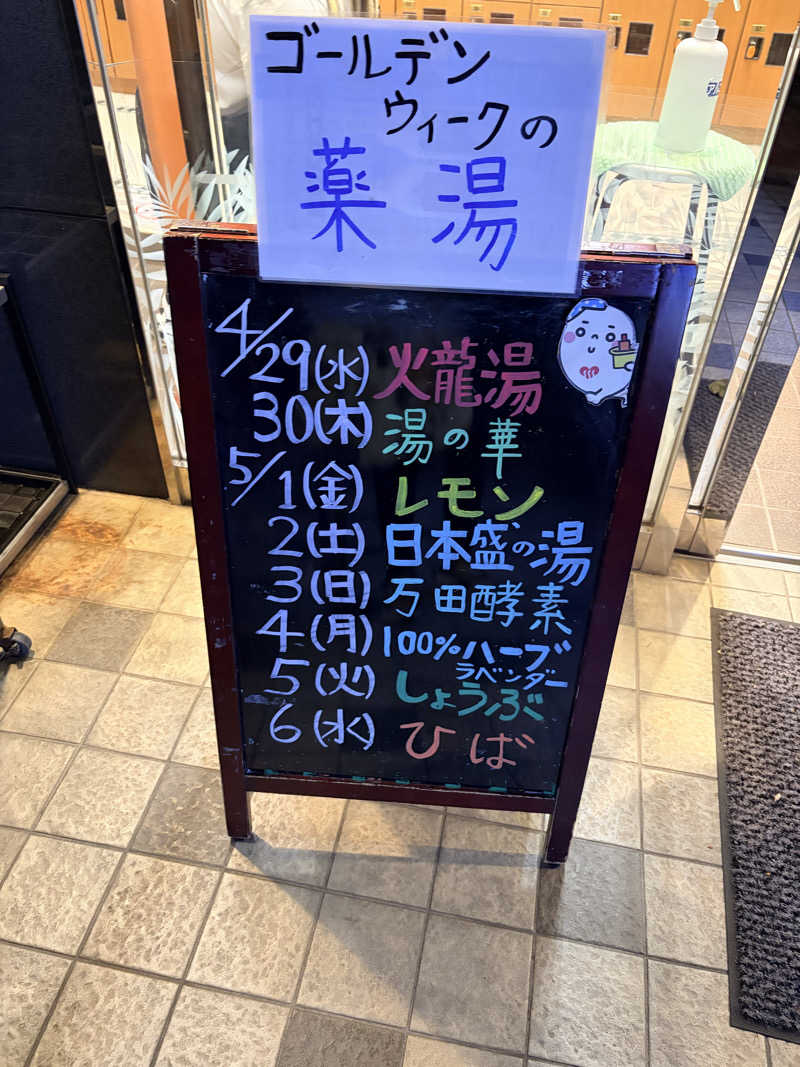 ゴールデン
ウィークの
薬湯
4/29(水) 火龍湯
30(木) 湯の華
5/1(金) レモン
2(土) 日本盛の湯
3(日) 万田酵素
4(月) 100%ハーブ
ラベンダー
5(火) しょうぶ
6(水) ひば